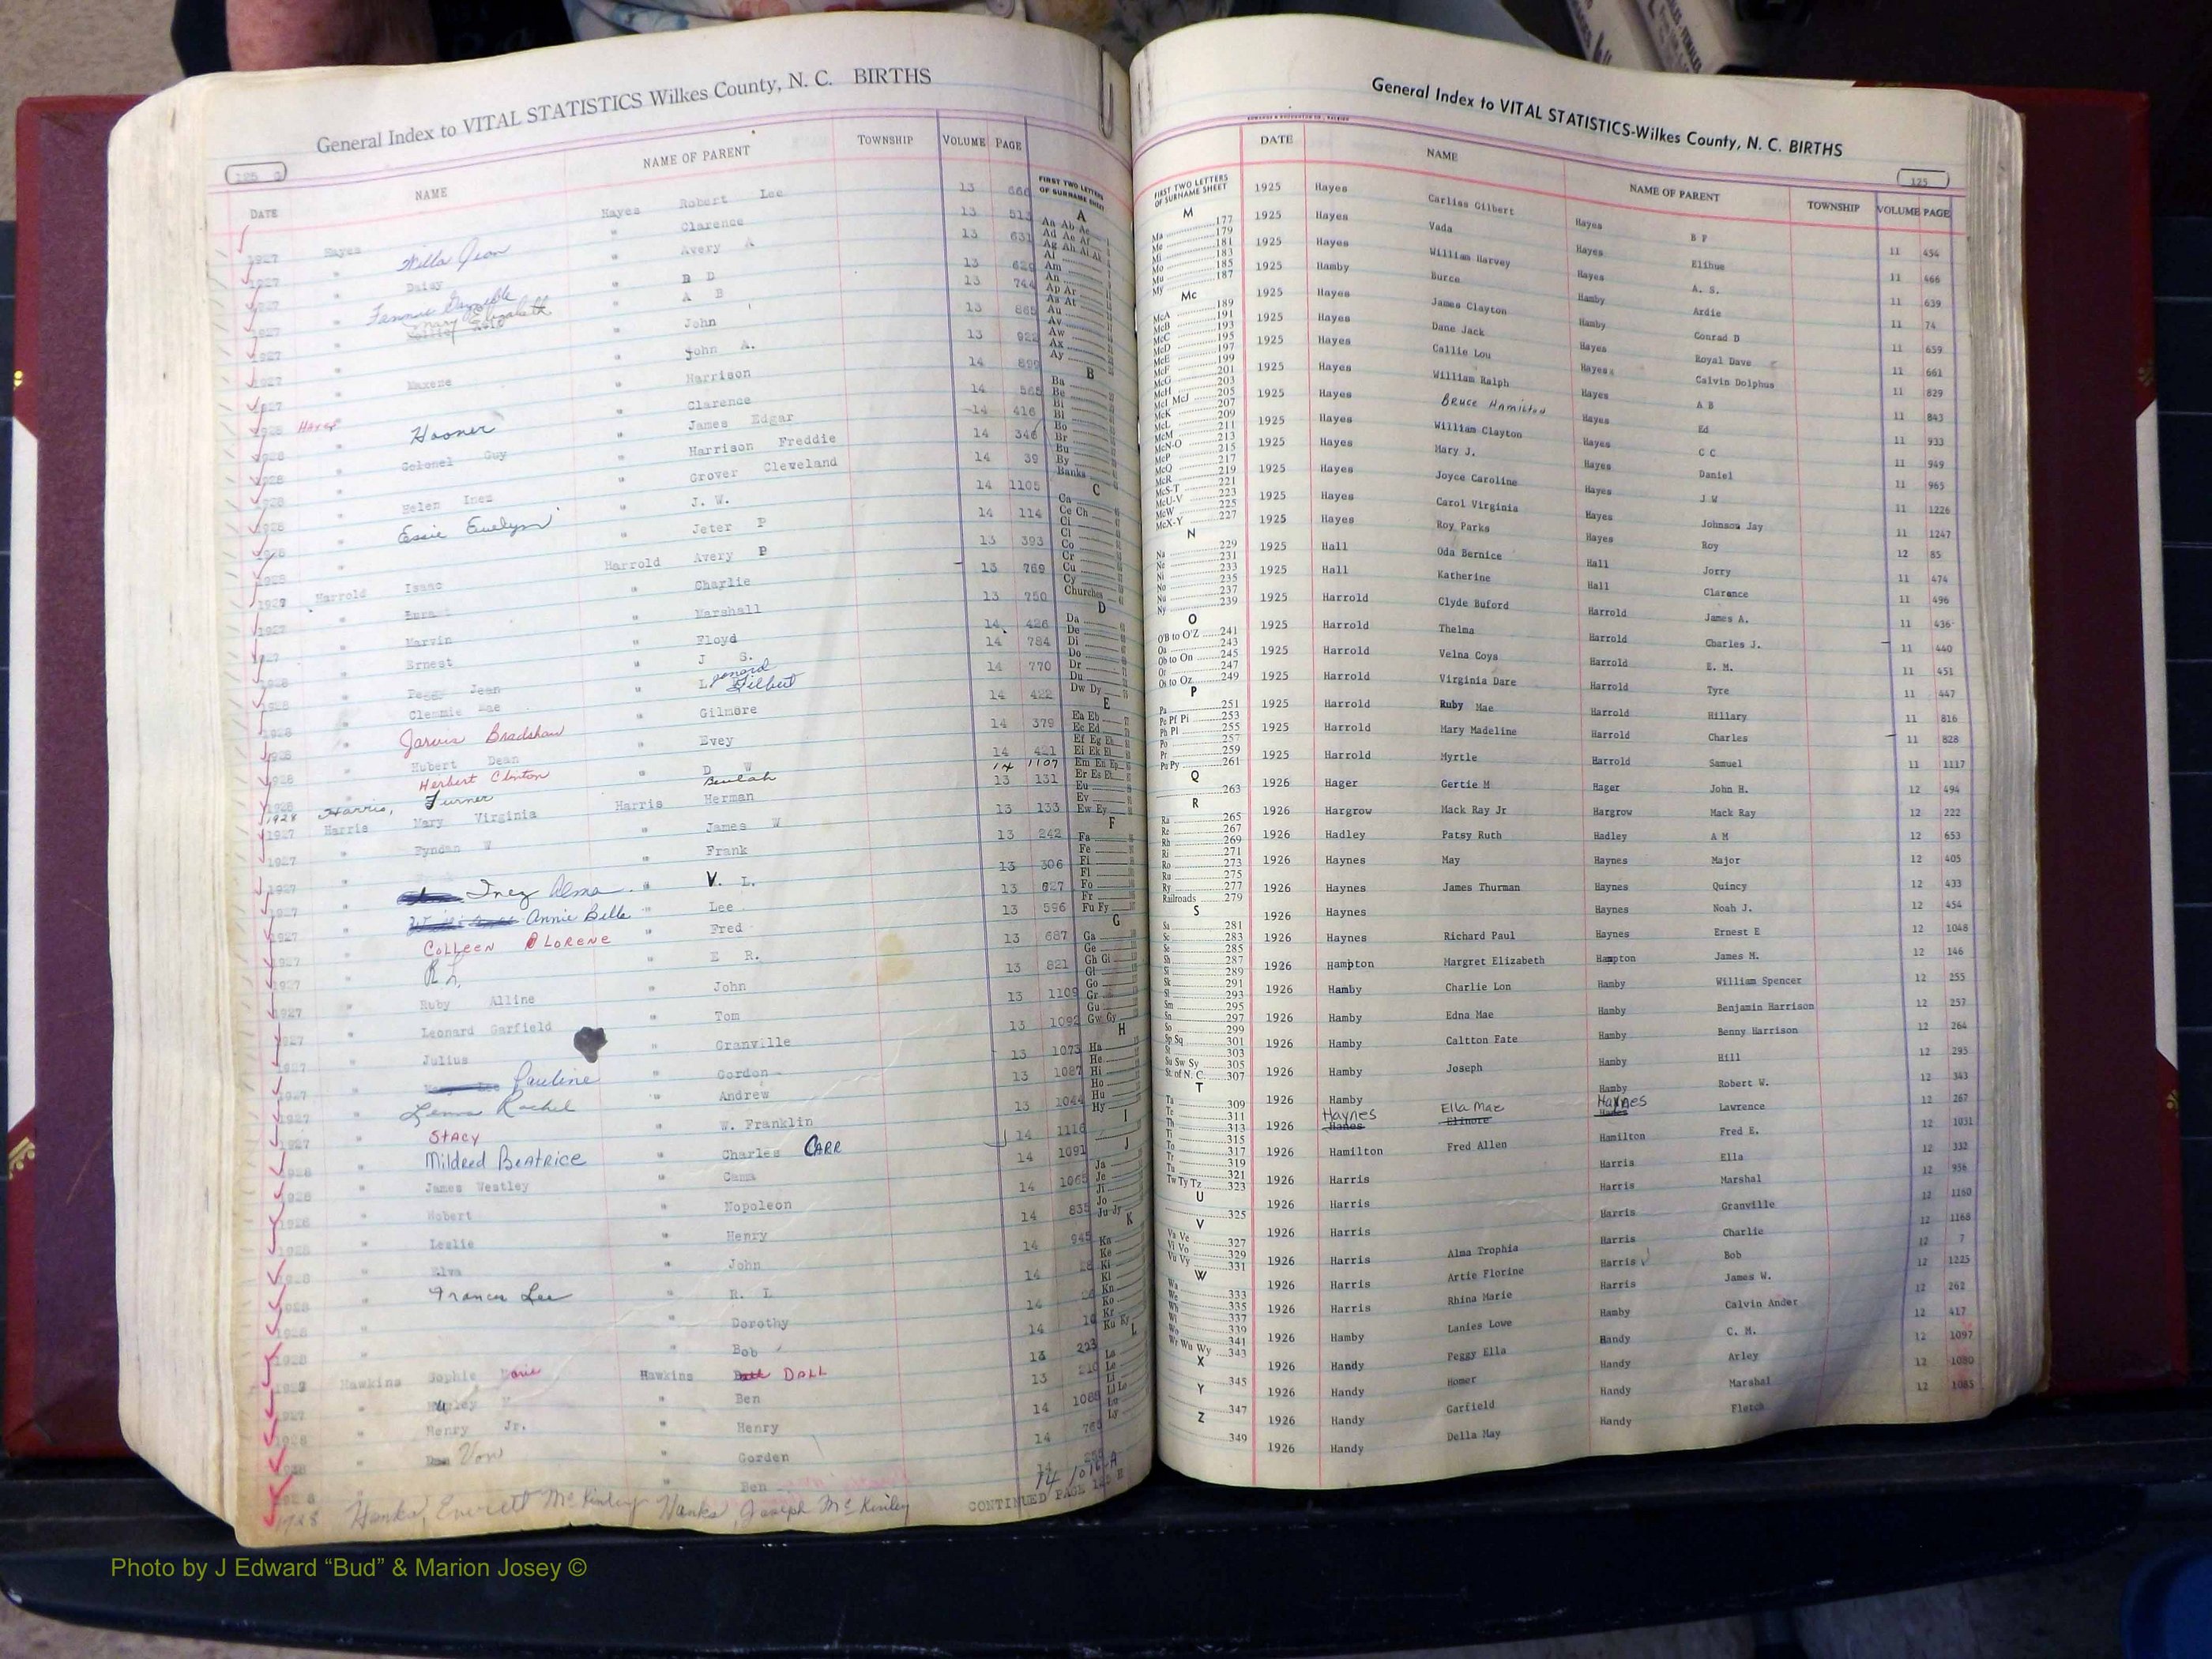 General Index to VITAL STATISTICS Wilkes County, N. C. BIRTHS
DATE NAME NAME OF PARENT TOWNSHIP VOLUME PAGE
1927 Hayes Willa Jean Hayes Robert Lee 13
1927 " Daisy " Clarence 13 513
1927 " " Avery A 13 631
1927 " Mary Elizabeth " B D 13 629
1927 " " A B 13 744
1927 " Maxene " John 13 865
" John A. 13 922
1928 " Hosner " Harrison 14 899
1928 " Colonel Guy " Clarence 14 565
1928 " Helen Inez " James Edgar 14 416
1928 " Essie Evelyn " Harrison Freddie 14 346
" Grover Cleveland 14 39
" J. W. 14 1105
" Jeter P 14 114
Harrold Isaac Harrold Avery P 13 393
1927 " " Charlie 13 769
1927 " Marvin " Marshall 13 750
1928 " Ernest " Floyd 14 426
" Peggy Jean " J S. 14 784
" Clemmie Mae " L Gilbert 14 770
1928 " Jarvis Bradshaw " Gilmore 14 422
1928 " Hubert Dean " Evey 14 379
1928 " Herbert Clinton " D W 14 421
1928 Harris, Turner Beulah 14 1107
1927 Harris Mary Virginia Harris Herman 13 131
1927 " Fyndan W " James W 13 133
1927 " Inez Alma " Frank 13 242
1927 " Annie Belle " V. L. 13 306
1927 COLLEEN LORENE " Lee 13 627
1927 R L, " Fred 13 596
1927 " Ruby Alline " E R. 13 687
1927 " Leonard Garfield " John 13 821
1927 " Julius " Tom 13 1109
1927 " Pauline " Granville 13 1092
1927 " Lena Rachel " Gordon 13 1073
1927 " STACY " Andrew 13 1087
1928 " Mildred BEATRICE " W. Franklin 13 1044
1928 " James Westley " Charles CARR 14 1116
1928 " Robert " Cama 14 1091
1928 " Leslie " Nopoleon 14 1065
1928 " Elva " Henry 14 835
1928 " Frances Lee " John 14 945
1928 " " R. L 14
1928 " " Dorothy 14
" Bob 14
Hawkins Sophie Marie Hawkins DOLL 13 223
1927 " " Ben 13 210
1928 " Henry Jr. " Henry 14 1088
1928 " Von " Gorden 14 765
1928 " " Ben 14
1928 Hanks, Everett McKinley Hanks, Joseph McKinley 14 1016-A
CONTINUED PAGE 125 B
FIRST TWO LETTERS
OF SURNAME SHEET
A
Aa Ab Ac
Ad Ae Af
Ag Ah Ai Ak
Al
Am
An
Ap Ar
As At
Au
Av
Aw
Ax
Ay
B
Ba
Be
Bi
Bl
Bo
Br
Bu
By
Banks
C
Ca
Ce Ch
Ci
Cl
Co
Cr
Cu
Cy
Churches
D
Da
De
Di
Do
Dr
Du
Dw Dy
E
Ea Eb
Ec Ed
Ef Eg Eh
Ei Ek El
Em En Ep
Er Es Et
Eu
Ev
Ew Ey
F
Fa
Fe
Fi
Fl
Fo
Fr
Fu Fy
G
Ga
Ge
Gh Gi
Gl
Go
Gr
Gu
Gw Gy
H
Ha
He
Hi
Ho
Hu
Hy
I
J
Ja
Je
Ji
Jo
Ju Jy
K
Ka
Ke
Ki
Kl
Kn
Ko
Kr
Ku Ky
L
La
Le
Li
Ll Lo
Lu
Ly
General Index to VITAL STATISTICS-Wilkes County, N. C. BIRTHS
125
FIRST TWO LETTERS
OF SURNAME SHEET
M
Ma 177
Me 179
Mi 181
Mo 183
Mu 185
My 187
Mc
McA 189
McB 191
McC 193
McD 195
McE 197
McF 199
McG 201
McH 203
McI McJ 205
McK 207
McL 209
McM 211
McN-O 213
McP 215
McQ 217
McR 219
McS-T 221
McU-V 223
McW 225
McX-Y 227
N
Na 229
Ne 231
Ni 233
No 235
Nu 237
Ny 239
O
O'B to O'Z 241
Oa 243
Ob to On 245
Or 247
Os to Oz 249
P
Pa 251
Pe Pf Pi 253
Ph Pl 255
Po 257
Pr 259
Pu Py 261
Q
263
R
Ra 265
Re 267
Rh 269
Ri 271
Ro 273
Ru 275
Ry 277
Railroads 279
S
Sa 281
Sc 283
Se 285
Sh 287
Si 289
Sk 291
Sl 293
Sm 295
Sn 297
So 299
Sp Sq 301
St 303
Su Sw Sy 305
St. of N. C. 307
T
Ta 309
Te 311
Th 313
Ti 315
To 317
Tr 319
Tu 321
Tw Ty Tz 323
U
325
V
Va Ve 327
Vi Vo 329
Vu Vy 331
W
Wa 333
We 335
Wh 337
Wi 339
Wo 341
Wr Wu Wy 343
X
345
Y
347
Z
349
DATE NAME NAME OF PARENT TOWNSHIP VOLUME PAGE
1925 Hayes Carliss Gilbert Hayes B F 11 454
1925 Hayes Vada Hayes Elihue 11 466
1925 Hayes William Harvey Hayes A. S. 11 639
1925 Hamby Burce Hamby Ardie 11 74
1925 Hayes James Clayton Hamby Conrad D 11 659
1925 Hayes Dane Jack Hayes Royal Dave 11 661
1925 Hayes Callie Lou Hayes Calvin Dolphus 11 829
1925 Hayes William Ralph Hayes A B 11 843
1925 Hayes Bruce Hamilton Hayes Ed 11 933
1925 Hayes William Clayton Hayes C C 11 949
1925 Hayes Mary J. Hayes Daniel 11 965
1925 Hayes Joyce Caroline Hayes J W 11 1226
1925 Hayes Carol Virginia Hayes Johnson Jay 11 1247
1925 Hayes Roy Parks Hayes Roy 12 85
1925 Hall Oda Bernice Hall Jorry 11 474
1925 Hall Katherine Hall Clarance 11 496
1925 Harrold Clyde Buford Harrold James A. 11 436
1925 Harrold Thelma Harrold Charles J. 11 440
1925 Harrold Velna Coys Harrold E. M. 11 451
1925 Harrold Virginia Dare Harrold Tyre 11 447
1925 Harrold Ruby Mae Harrold Hillary 11 816
1925 Harrold Mary Madeline Harrold Charles 11 828
1925 Harrold Myrtle Harrold Samuel 11 1117
1926 Hager Gertie M Hager John H. 12 494
1926 Hargrow Mack Ray Jr Hargrow Mack Ray 12 222
1926 Hadley Patsy Ruth Hadley A M 12 653
1926 Haynes May Haynes Major 12 405
1926 Haynes James Thurman Haynes Quincy 12 433
1926 Haynes Haynes Noah J. 12 454
1926 Haynes Richard Paul Haynes Ernest E 12 1048
1926 Hampton Margret Elizabeth Hampton James M. 12 146
1926 Hamby Charlie Lon Hamby William Spencer 12 255
1926 Hamby Edna Mae Hamby Benjamin Harrison 12 257
1926 Hamby Caltton Fate Hamby Benny Harrison 12 264
1926 Hamby Joseph Hamby Hill 12 295
1926 Hamby Hamby Robert W. 12 343
1926 Haynes Ella Mae Haynes Lawrence 12 267
Hanes Elinore
1926 Hamilton Fred Allen Hamilton Fred E. 12 1031
1926 Harris Harris Ella 12 332
1926 Harris Harris Marshal 12 956
1926 Harris Harris Granville 12 1160
1926 Harris Alma Trophia Harris Charlie 12 1168
1926 Harris Artie Florine Harris Bob 12 7
1926 Harris Rhina Marie Harris James W. 12 1225
1926 Hamby Lanies Lowe Hamby Calvin Ander 12 262
1926 Handy Peggy Ella Handy C. M. 12 417
1926 Handy Homer Handy Arley 12 1097
1926 Handy Garfield Handy Marshal 12 1080
1926 Handy Della May Handy Fletch 12 1085
Photo by J Edward “Bud” & Marion Josey ©